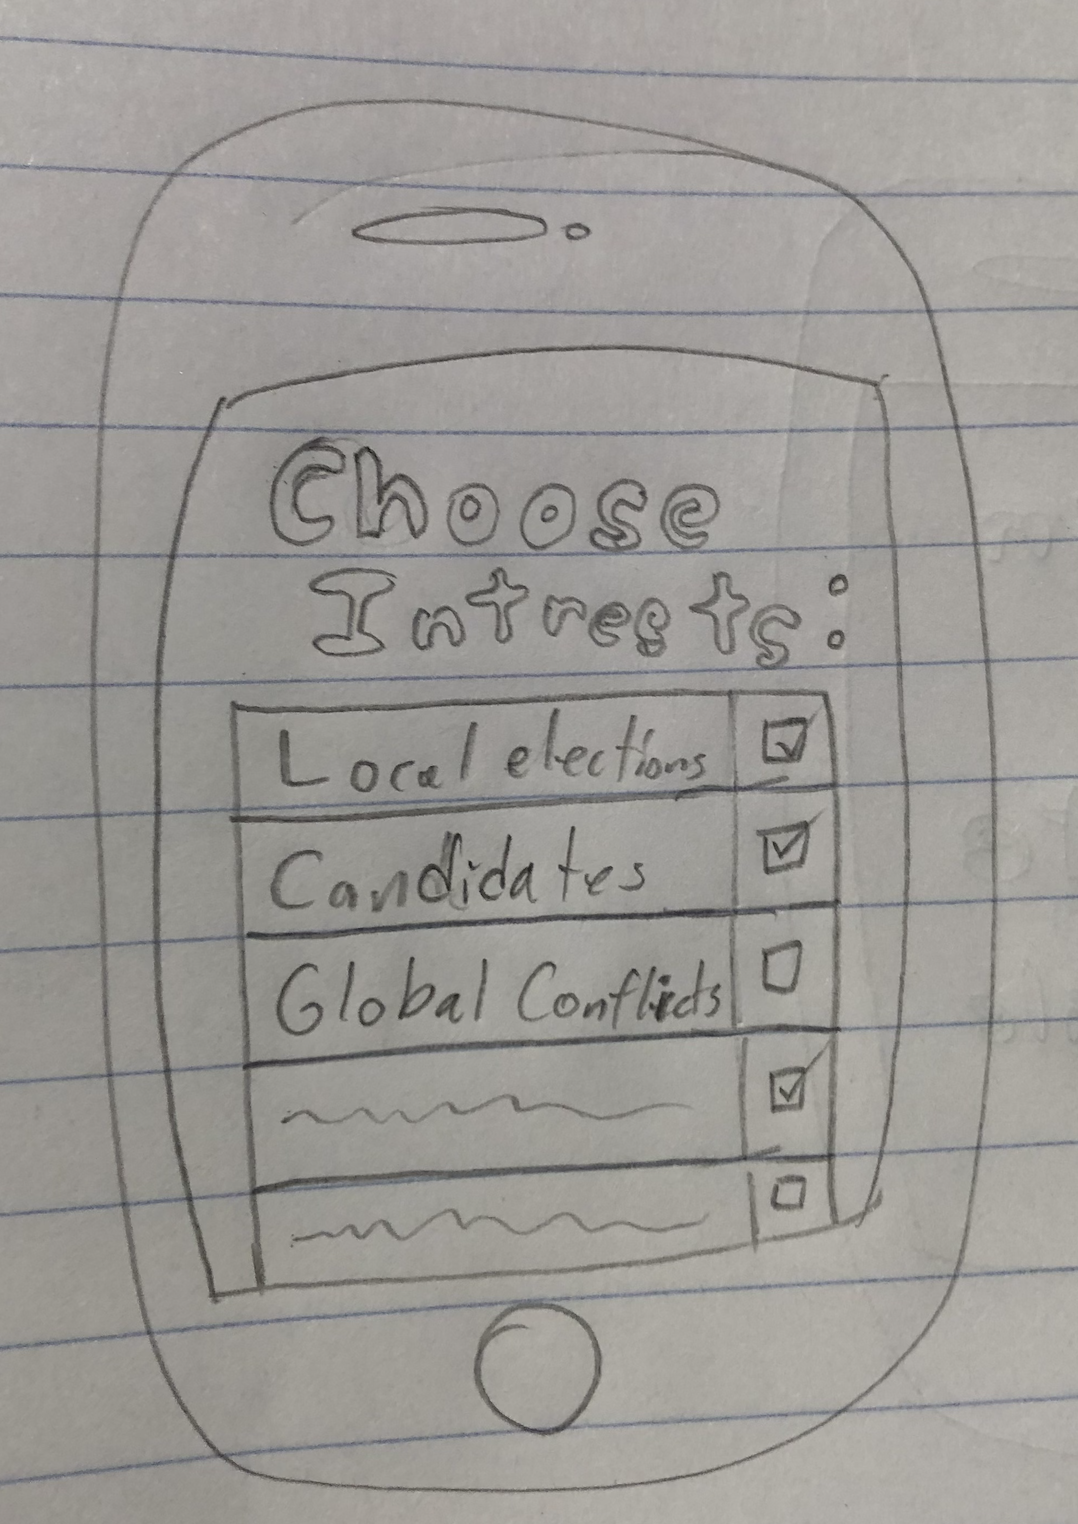 Choose
Intrests:
Local elections
Candidates
Global Conflicts